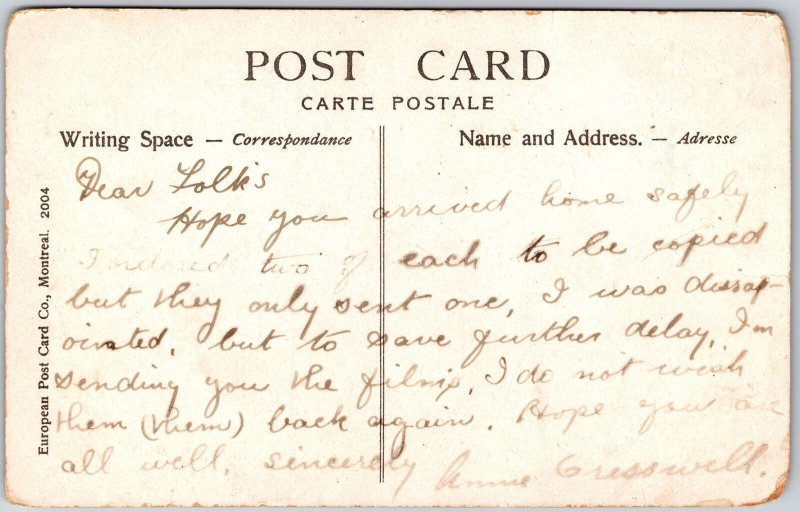 POST CARD
CARTE POSTALE
Writing Space — Correspondance
Name and Address. — Adresse
European Post Card Co., Montreal. 2004
Dear Folks
Hope you arrived home safely
I ordered two of each to be copied
but they only sent one, I was dissap-
ointed, but to save further delay, I'm
sending you the films, I do not wish
them (them) back again. Hope you are
all well. Sincerely Annie Cresswell.